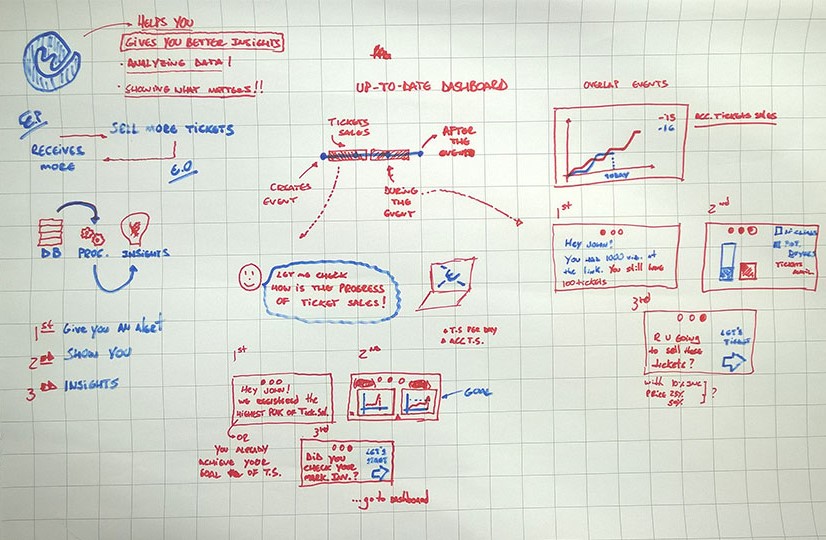 HELPS YOU
GIVES YOU BETTER INSIGHTS
· ANALYZING DATA!
· SHOWING WHAT MATTERS!!
E.P.
SELL MORE TICKETS
RECEIVES
MORE
E.O
DB PROC. INSIGHTS
1st GIVE YOU AN ALERT
2nd SHOW YOU
3rd INSIGHTS
UP-TO-DATE DASHBOARD
TICKETS
SALES
AFTER
THE
EVENTO
CREATES
EVENT
DURING
THE
EVENT
LET ME CHECK
HOW IS THE PROGRESS
OF TICKET SALES!
T.S PER DAY
ACC T.S.
1st
HEY JOHN!
WE REGISTERED THE
HIGHEST PEAK OF TICK. SAL.
OR
YOU ALREADY
ACHIEVE YOUR
GOAL OF T.S.
2nd
GOAL
3rd
DID YOU
CHECK YOUR
MARK. INV.?
LET'S
START
...go to DASHBOARD
OVERLAP EVENTS
-15
-16
ACC. TICKETS SALES
TODAY
1st
HEY JOHN!
YOU HAD 1000 VIS. AT
THE LINK. YOU STILL HAVE
100 TICKETS
2nd
POT.
BUYERS
TICKETS
AVAIL.
3rd
R U GOING
TO SELL THESE
TICKETS?
LET'S
WITH 10%
PRICE 25%
50%
?